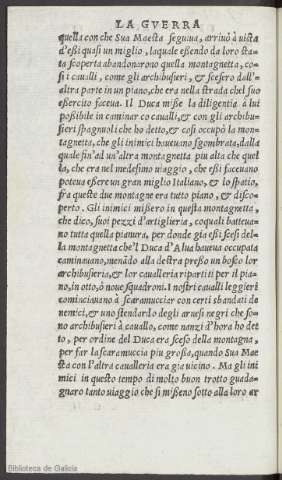 LA GVERRA
quella con che Sua Maesta seguiua, arriuò à uista
d'essi quasi un miglio, laquale essendo da loro sta-
ta scoperta abandonorono quella montagnetta, co-
si i caualli, come gli archibusieri, & scesero dall'-
altra parte in un piano, che era nella strada chel suo
essercito faceua. Il Duca misse la diligentia à lui
possibile in caminar co caualli, & con gli archibu-
sieri spagnuoli che ho detto, & cosi occupò la mon-
tagnetta, che gli inimici haueuano sgombrata, dalla
quale fin'ad un'altra montagnetta piu alta che quel
la, che era nel medesimo uiaggio, che essi faceuano
poteua essere un gran miglio Italiano, & lo spatio,
fra queste due montagne era tutto piano, & disco-
perto. Gli inimici missero in questa montagnetta,
che dico, suoi pezzi d'artiglieria, co quali batteua-
no tutta quella pianura, per donde gia essi scesi del-
la montagnetta che'l Duca d'Alua haueua occupata
caminauano, menādo alla destra presso un bosco lor
archibusieria, & lor caualleria ripartiti per il pia-
no, in otto, ò noue squadroni. I nostri caualli leggieri
cominciauano à scaramucciar con certi sbandati de
nemici, & uno stendardo degli arnesi negri che so-
no archibusieri à cauallo, come nanzi d'hora ho det
to, per ordine del Duca era sceso della montagna,
per far la scaramuccia piu grossa, quando Sua Mae
sta con l'altra caualleria era gia uicino. Ma gli ini
mici in questo tempo di molto buon trotto guada-
gnaro tanto uiaggio che si missero sotto alla loro ar
Biblioteca de Galicia